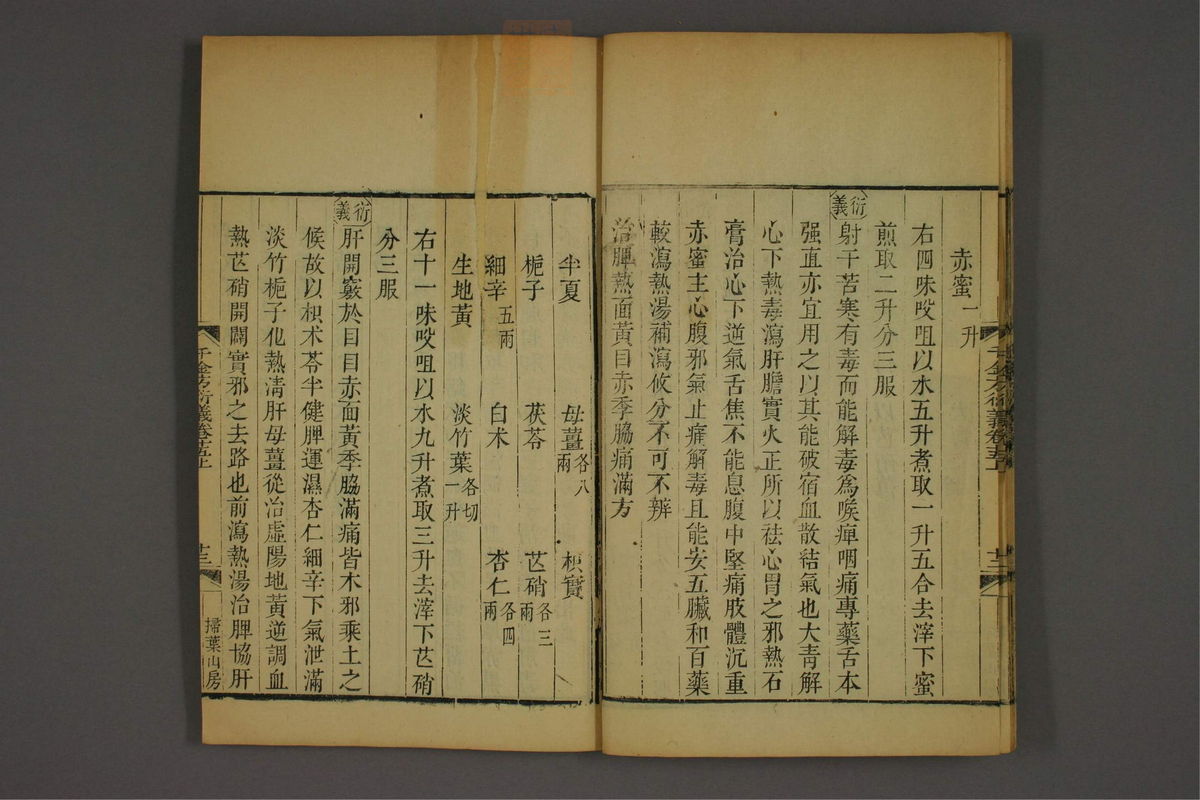 赤蜜一升
右四味㕮咀以水五升煮取一升五合去滓下蜜
煎取二升分三服
衍義
射干苦寒有毒而能解毒爲喉痺咽痛專藥舌本
强直亦宜用之以其能破宿血散結氣也大青解
心下熱毒瀉肝膽實火正所以祛心胃之邪熱石
膏治心下逆氣舌焦不能息腹中堅痛肢體沉重
赤蜜主心腹邪氣止痛解毒且能安五臟和百藥
較瀉熱湯補瀉攸分不可不辨
治脾熱面黃目赤季脇痛滿方
千金方衍義卷十五上
十三
半夏 母薑各八兩 枳實
梔子 茯苓 芒硝各三兩
細辛五兩 白朮 杏仁各四兩
生地黃 淡竹葉各切一升
右十一味㕮咀以水九升煮取三升去滓下芒硝
分三服
衍義
肝開竅於目目赤面黃季脇滿痛皆木邪乘土之
候故以枳朮苓半健脾運濕杏仁細辛下氣泄滿
淡竹梔子化熱淸肝母薑從治虛陽地黃逆調血
熱芒硝開闢實邪之去路也前瀉熱湯治脾協肝
千金方衍義卷十五上
十三
掃葉山房